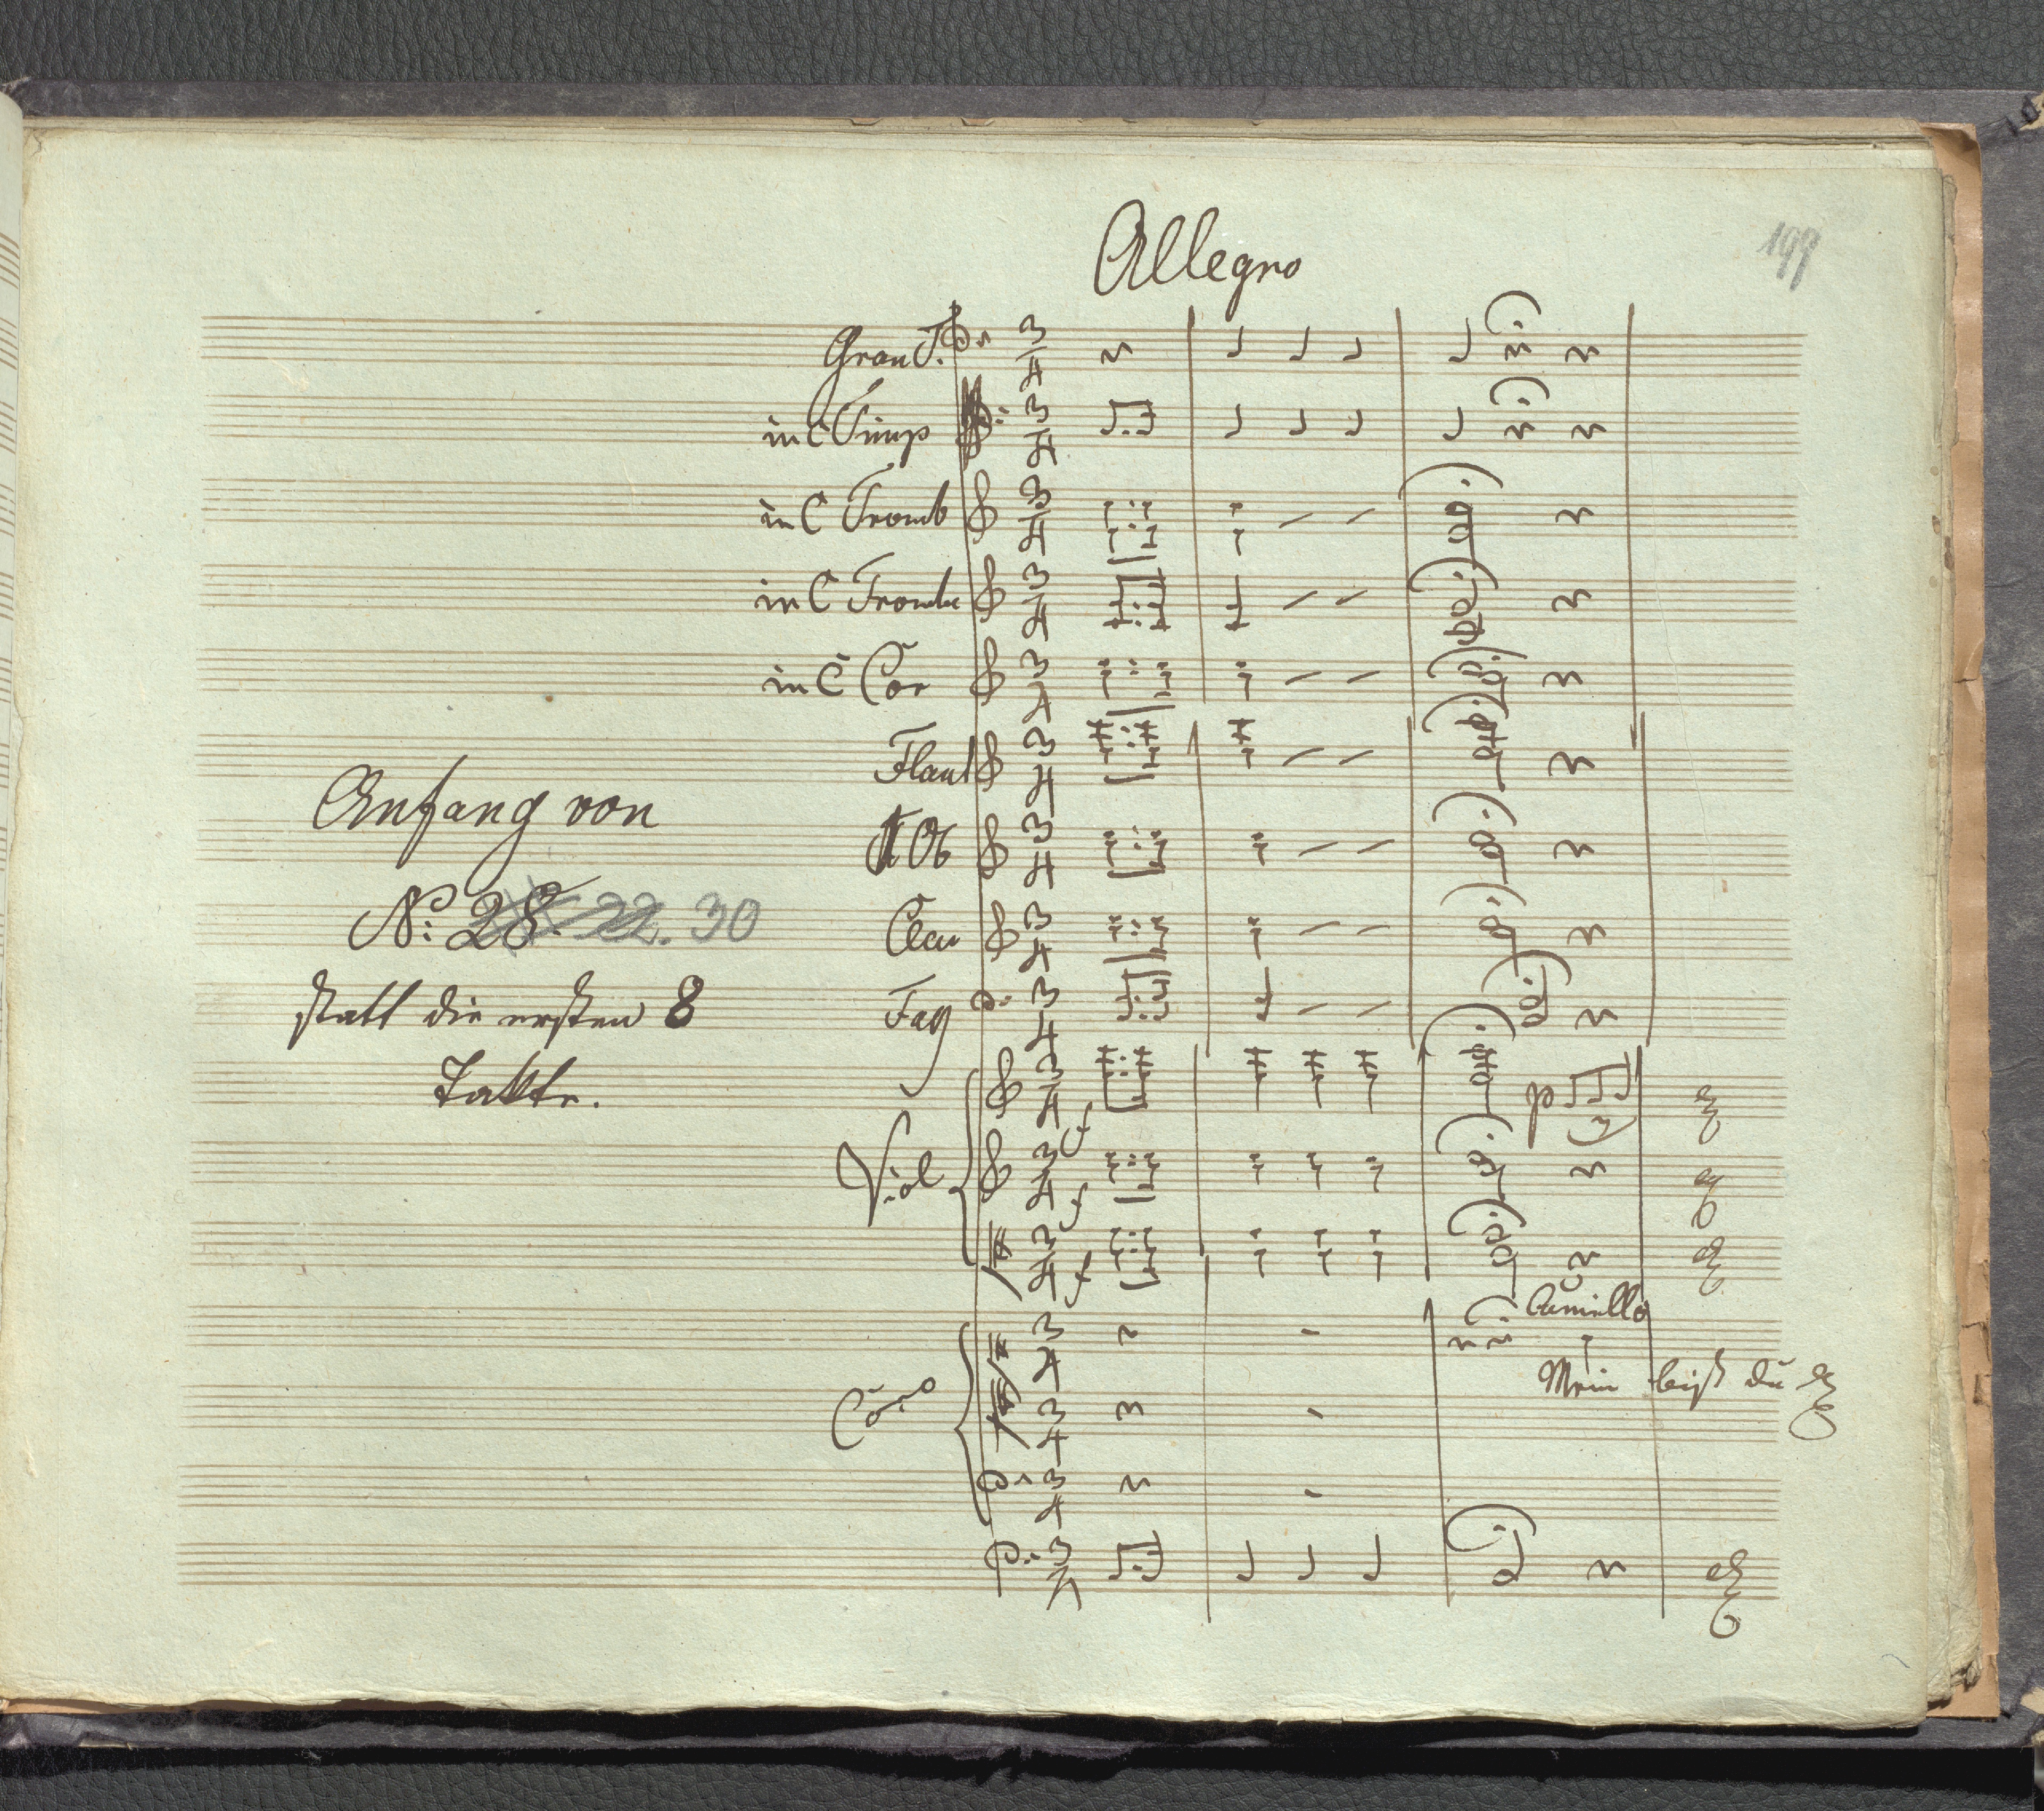 Allegro
197
Gran T.
in C Timp
in C Tromb
in C Trombe
in C Cor
Flaut
Ob
Anfang von
No: 28. 22. 30
Clar
Fag
statt die ersten 8
Takte.
Viol
f
f
f
p
Coro
Mein
du